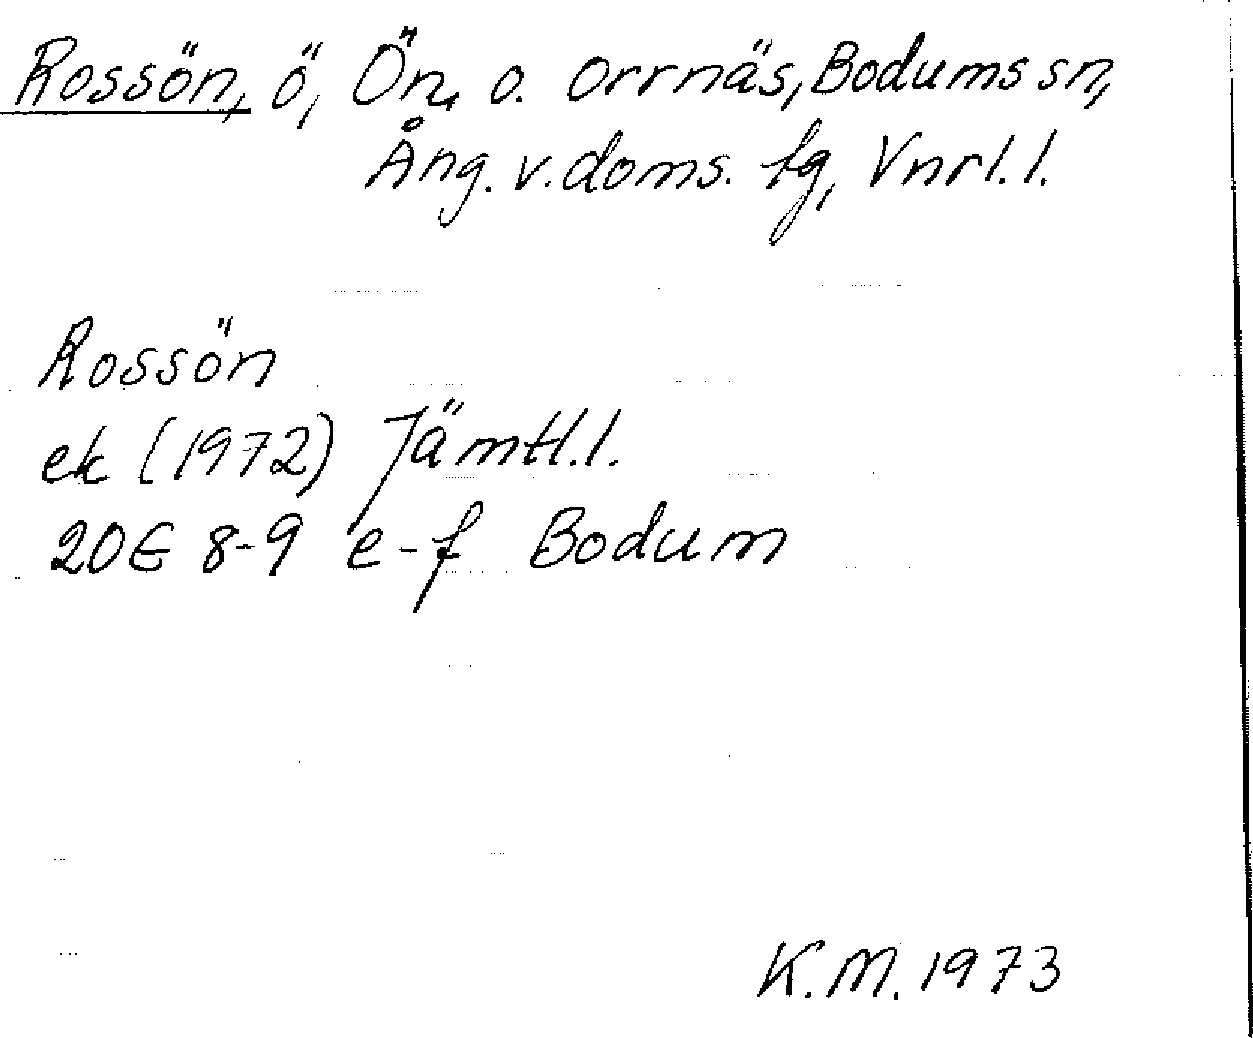 Rossön, ö, Ön, o. Orrnäs, Bodums sn,
Ång. v. doms. tg, Vnrl. l.
Rossön
ek (1972) Jämtl. l.
20E 8-9 e-f Bodum
K.M. 1973